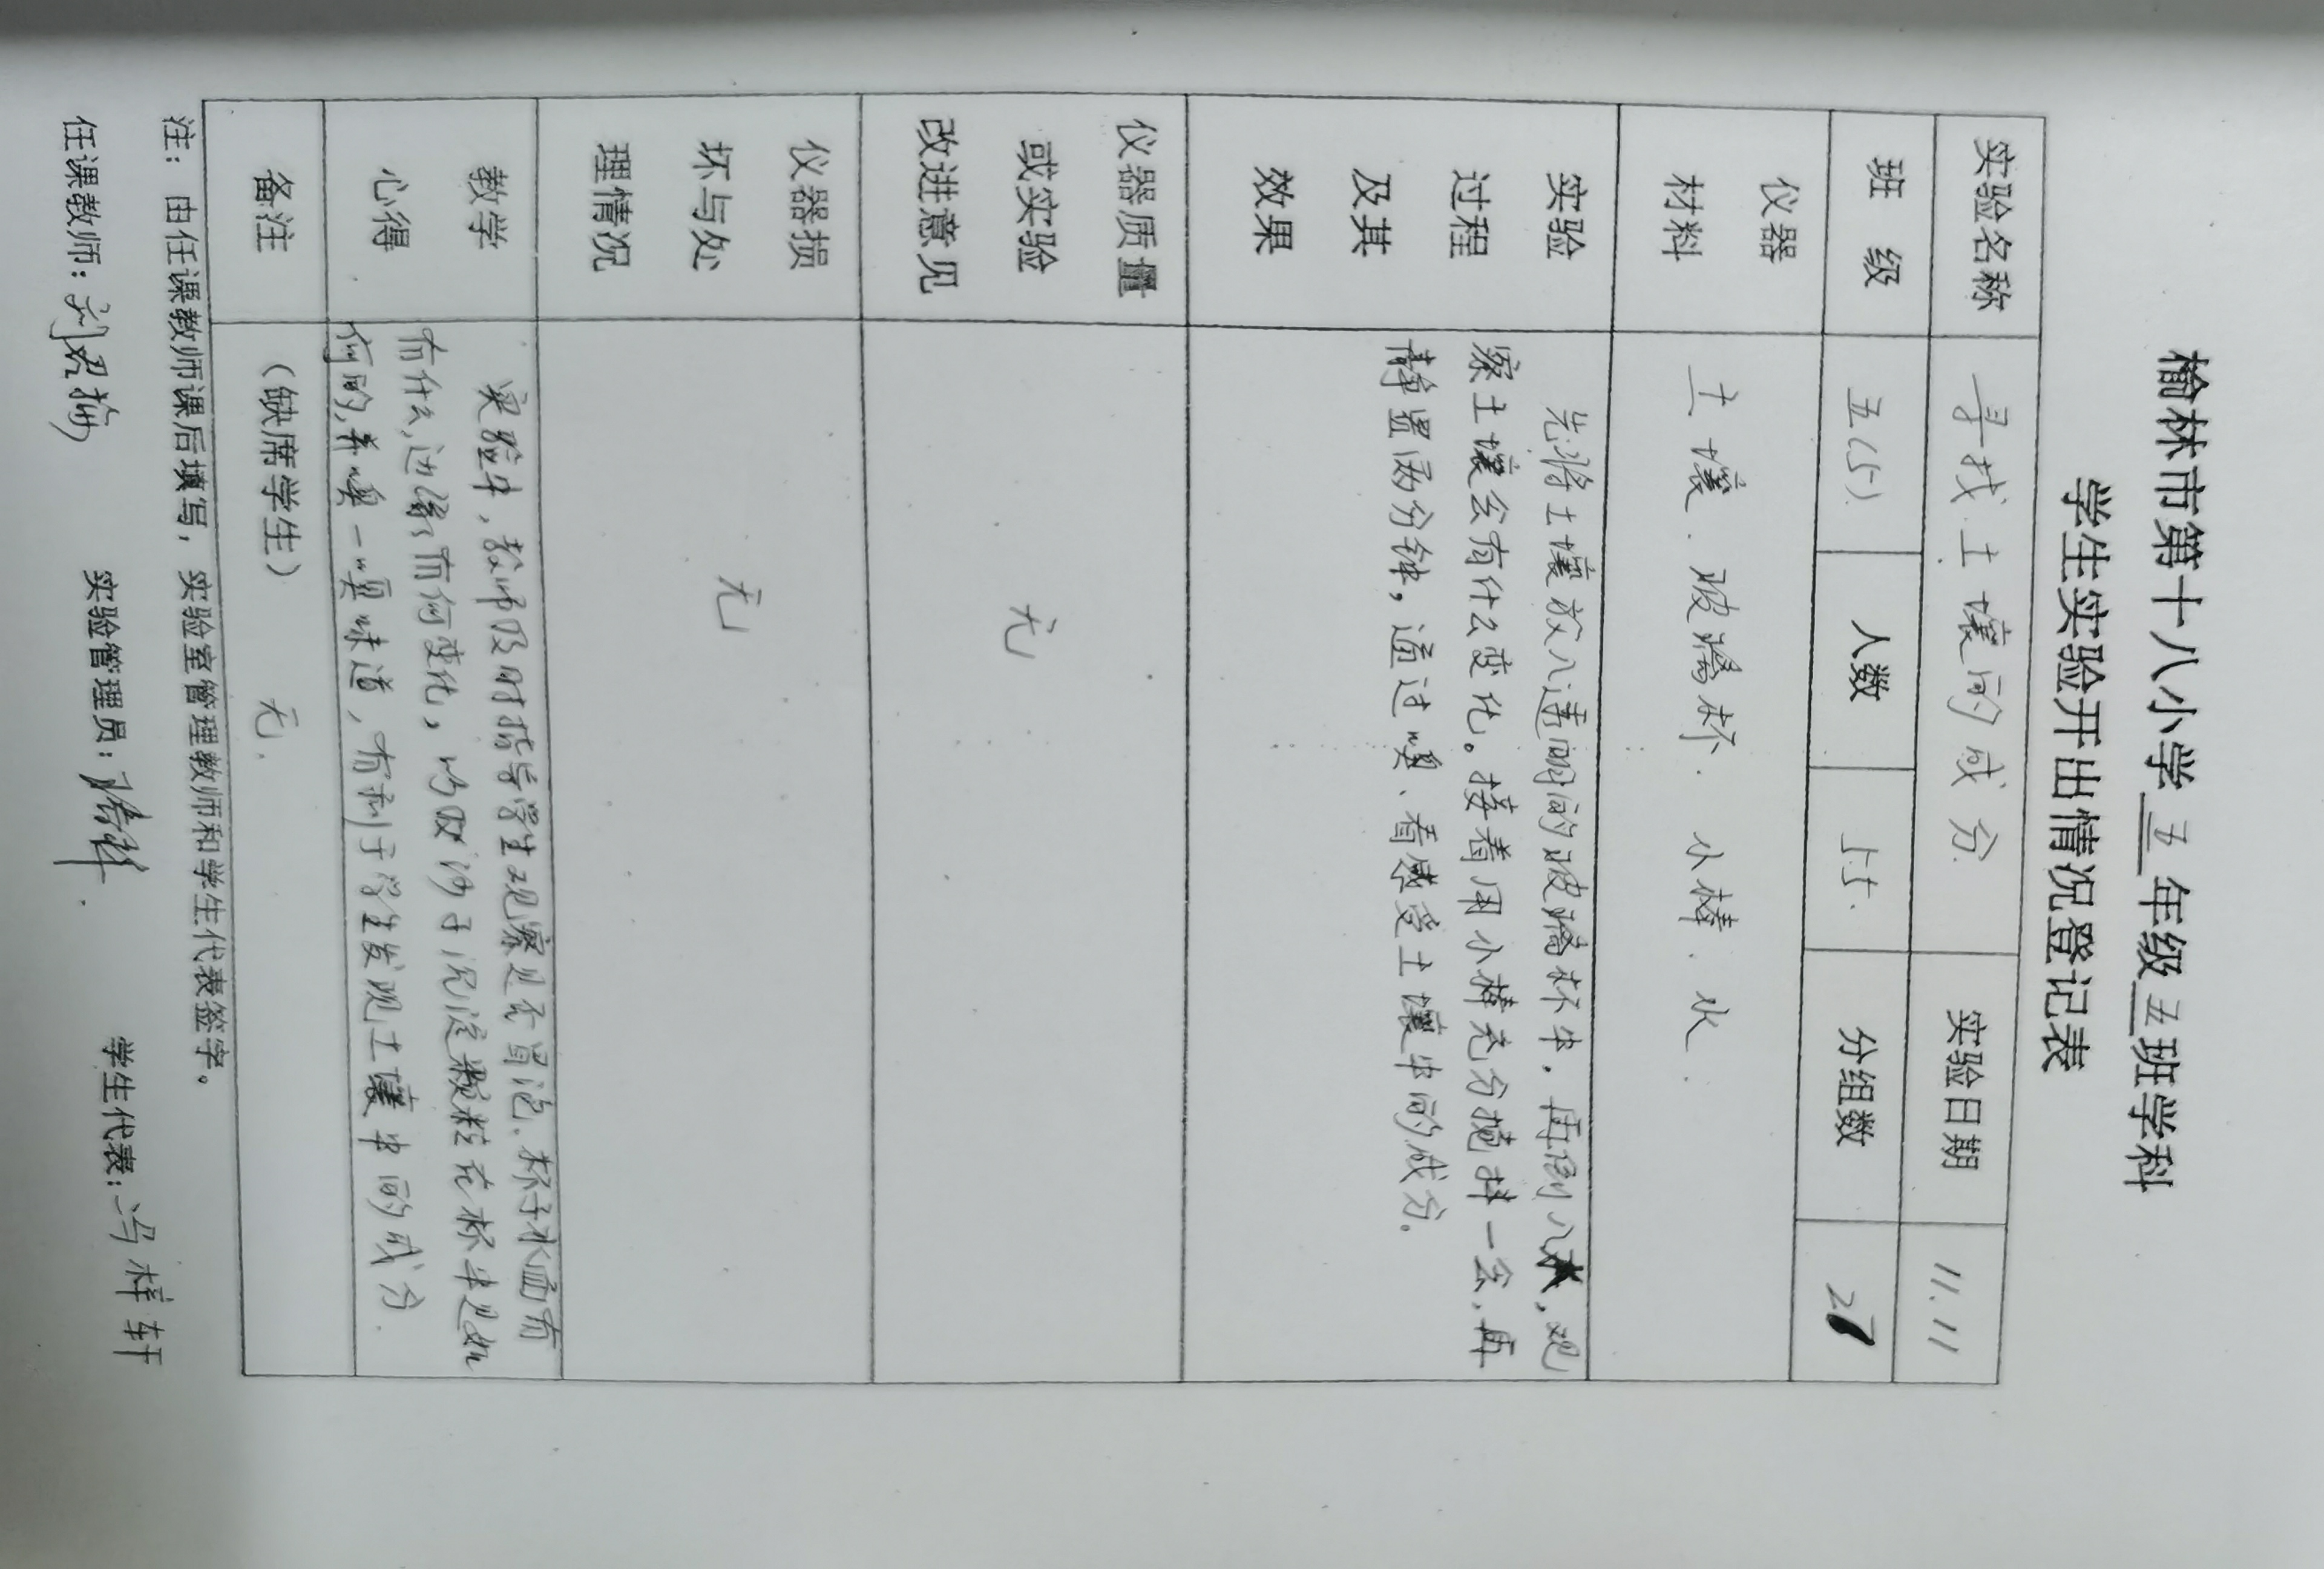 榆林市第十八小学 五 年级 五 班学科
学生实验开出情况登记表
实验名称 寻找土壤的成分 实验日期 11.11
班 级 五(5) 人数 55. 分组数 27
仪器
材料
土壤、玻璃杯、小棒、水.
实验
过程
及其
效果
先将土壤放入透明的玻璃杯中，再倒入水，观
察土壤会有什么变化。接着用小棒充分搅拌一会，再
静置两分钟，通过嗅、看感受土壤中的成分。
仪器质量
或实验
改进意见
无
仪器损
坏与处
理情况
无
教学
心得
实验中，教师及时指导学生观察是否冒泡，杯子水面有
有什么，边缘有何变化，以及沙子沉淀颗粒在杯中是如
何的，并嗅一嗅味道，有利于学生发现土壤中的成分.
备注 （缺席学生） 无.
注： 由任课教师课后填写， 实验室管理教师和学生代表签字。
任课教师： 实验管理员： 学生代表：冯梓轩